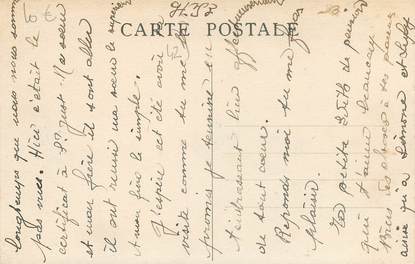 CARTE POSTALE
longtemps que nous nous sommes
pas vues. Hier c'était le
certificat à St Ma sœur
et mon frère il sont allés
il ont réussi ma sœur le supérieur
et mon frère le simple.
J'espère
visite comme tu me l'
promis je termine en
t'embrassant bien affectueusement
de tout cœur.
Réponds moi tu me feras
plaisir.
Ta petite Edith de
qui t'aime beaucoup
Bien des choses à tes parents
ainsi qu'à Simone et